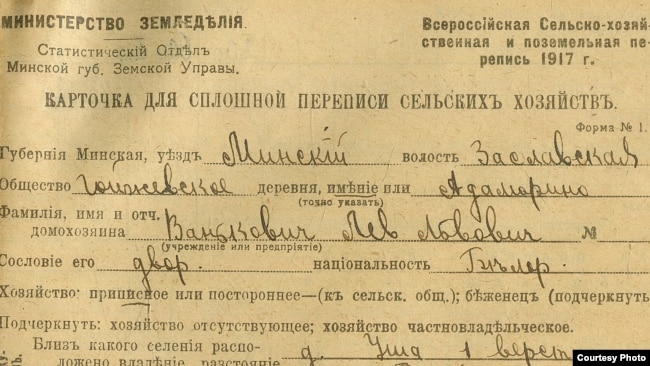 МИНИСТЕРСТВО ЗЕМЛЕДѢЛІЯ.
Статистическій Отдѣлъ
Минской губ. Земской Управы.
Всероссійская Сельско-хозяй-
ственная и поземельная пе-
репись 1917 г.
КАРТОЧКА ДЛЯ СПЛОШНОЙ ПЕРЕПИСИ СЕЛЬСКИХЪ ХОЗЯЙСТВЪ.
Форма № 1.
Губернія Минская, уѣздъ Минскій волость Заславская
Общество деревня, имѣніе или Адамарино
(точно указать)
Фамилія, имя и отч.
домохозяина Ваньковичъ Левъ Львовичъ №
(учрежденіе или предпріятіе)
Сословіе его двор. національность Бѣлор.
Хозяйство: приписное или постороннее—(къ сельск. общ.); бѣженецъ (подчеркнуть
Подчеркнуть: хозяйство отсутствующее; хозяйство частновладѣльческое.
Близъ какого селенія распо-
ложено владѣніе, разстояніе д. Уша 1 верст
Courtesy Photo